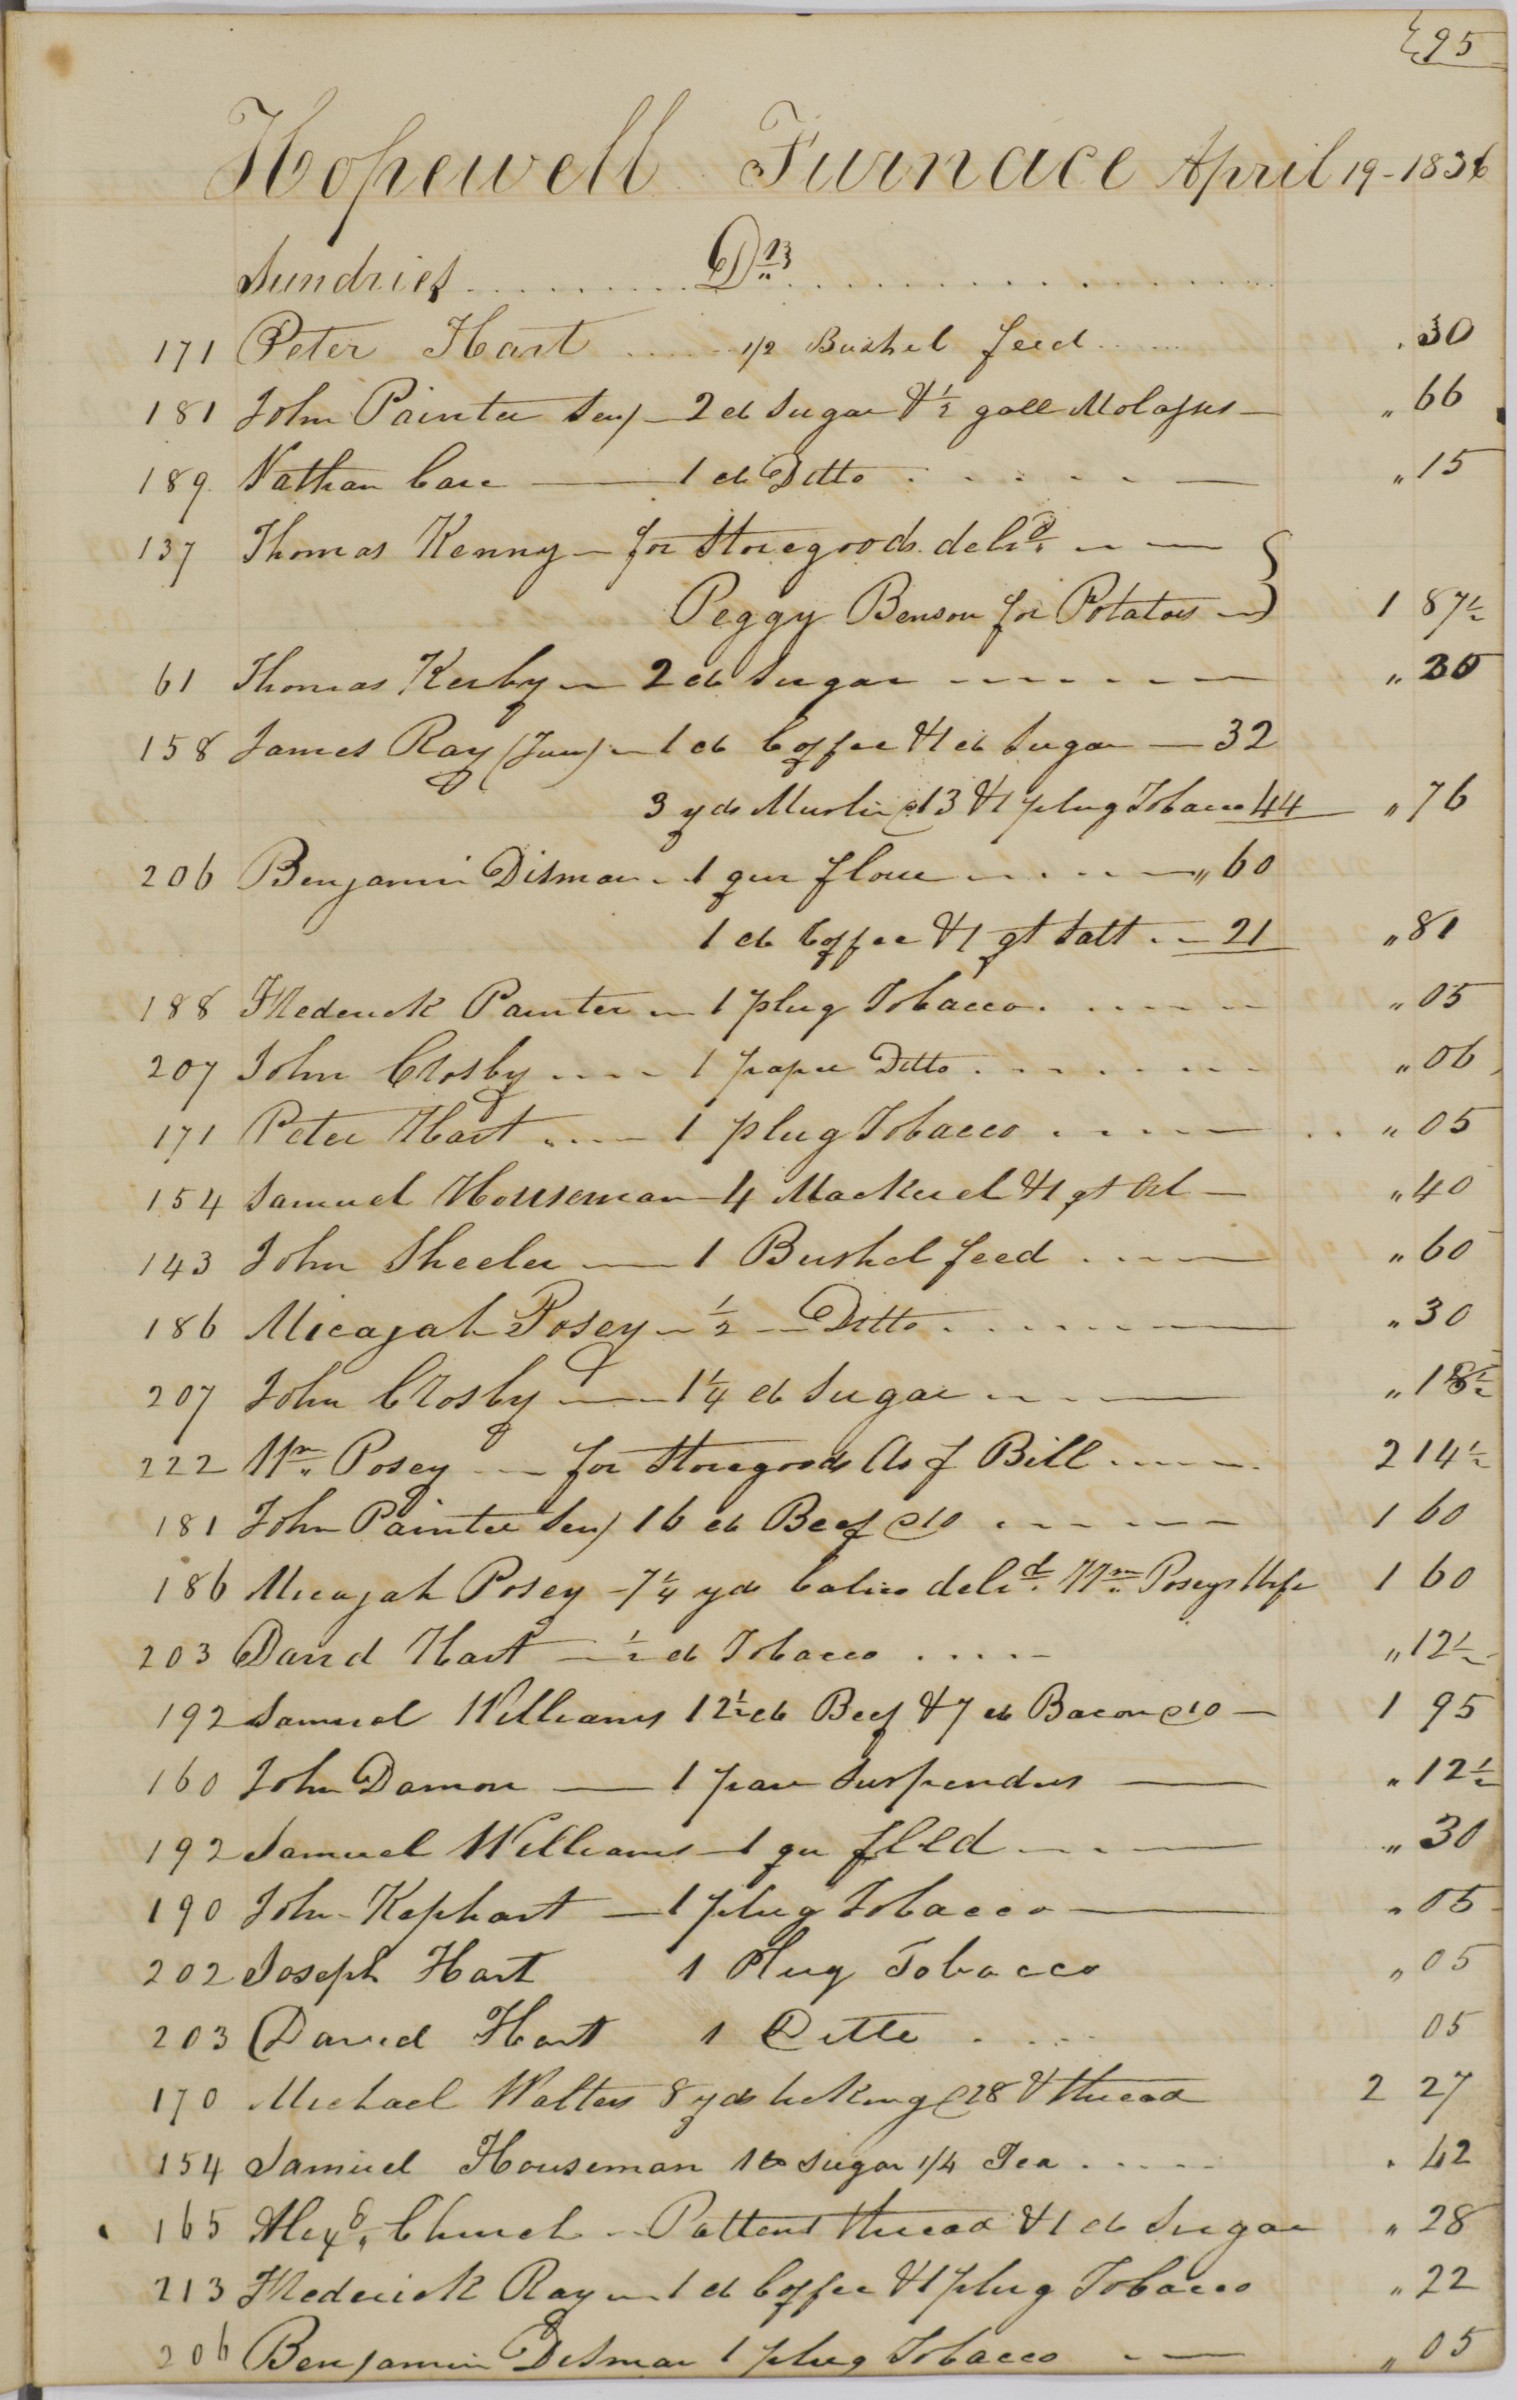 95
Hopewell Furnace April 19-1836
Sundries Drs
171 Peter Hart 1/2 Bushel feed . 30
181 John Painter Senr 2 lb Sugar & 1/2 gall Molasses „ 66
189 Nathan Care 1 lb Ditto „ 15
137 Thomas Kenny for Storegoods deld
Peggy Benson for Potatoes } 1 87 1/2
61 Thomas Kerby 2 lb Sugar „ 30
158 James Ray (Jun) 1 lb Coffee & 1 lb Sugar 32
3 yds Muslin @13 & 1 plug Tobacco 44 „ 76
206 Benjamin Ditmar 1 qur flour „ 60
1 lb Coffee & 1 qt Salt 21 „ 81
188 Frederick Painter 1 plug Tobacco „ 05
207 John Crosby 1 paper Ditto „ 06
171 Peter Hart 1 plug Tobacco „ 05
154 Samuel Houseman 4 Mackerel & 1 qt Oil „ 40
143 John Sheeler 1 Bushel feed „ 60
186 Micajah Posey 1/2 Ditto „ 30
207 John Crosby 1 1/4 lb Sugar „ 18 1/2
222 Wm Posey for Storegoods As f Bill 2 14 1/2
181 John Painter Senr 16 lb Beef @10 1 60
186 Micajah Posey 7 1/4 yds Calico deld Wm Poseys Wife 1 60
203 David Hart 1/2 lb Tobacco „ 12 1/2
192 Samuel Williams 12 1/2 lb Beef & 7 lb Bacon @10 1 95
160 John Damon 1 pair Suspenders „ 12 1/2
192 Samuel Williams 1 qu feed „ 30
190 John Kephart 1 plug Tobacco „ 05
202 Joseph Hart 1 Plug Tobacco „ 05
203 David Hart 1 Ditto 05
170 Michael Walters 8 yds ticking @28 & thread 2 27
154 Samuel Houseman 1 lb Sugar 1/4 Tea . 42
165 Alexr Church Pattent thread & 1 lb Sugar „ 28
213 Frederick Ray 1 lb Coffee & 1 plug Tobacco „ 22
206 Benjamin Ditmar 1 plug Tobacco „ 05